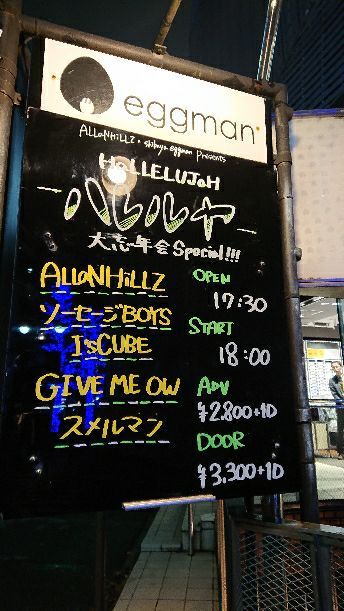 eggman
ALLaNHiLLZ × shibuya eggman Presents
HaLLELUJaH
-ハレルヤ-
大忘年会Special!!!
ALLaNHiLLZ
OPEN
17:30
ソーセージBOYS
START
I'sCUBE
18:00
GIVE ME OW
ADV
¥2.800+1D
スメルマン
DOOR
¥3,300+1D